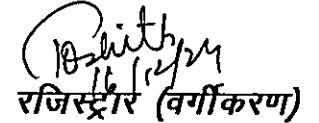 16/12/24
रजिस्ट्रार (वर्गीकरण)